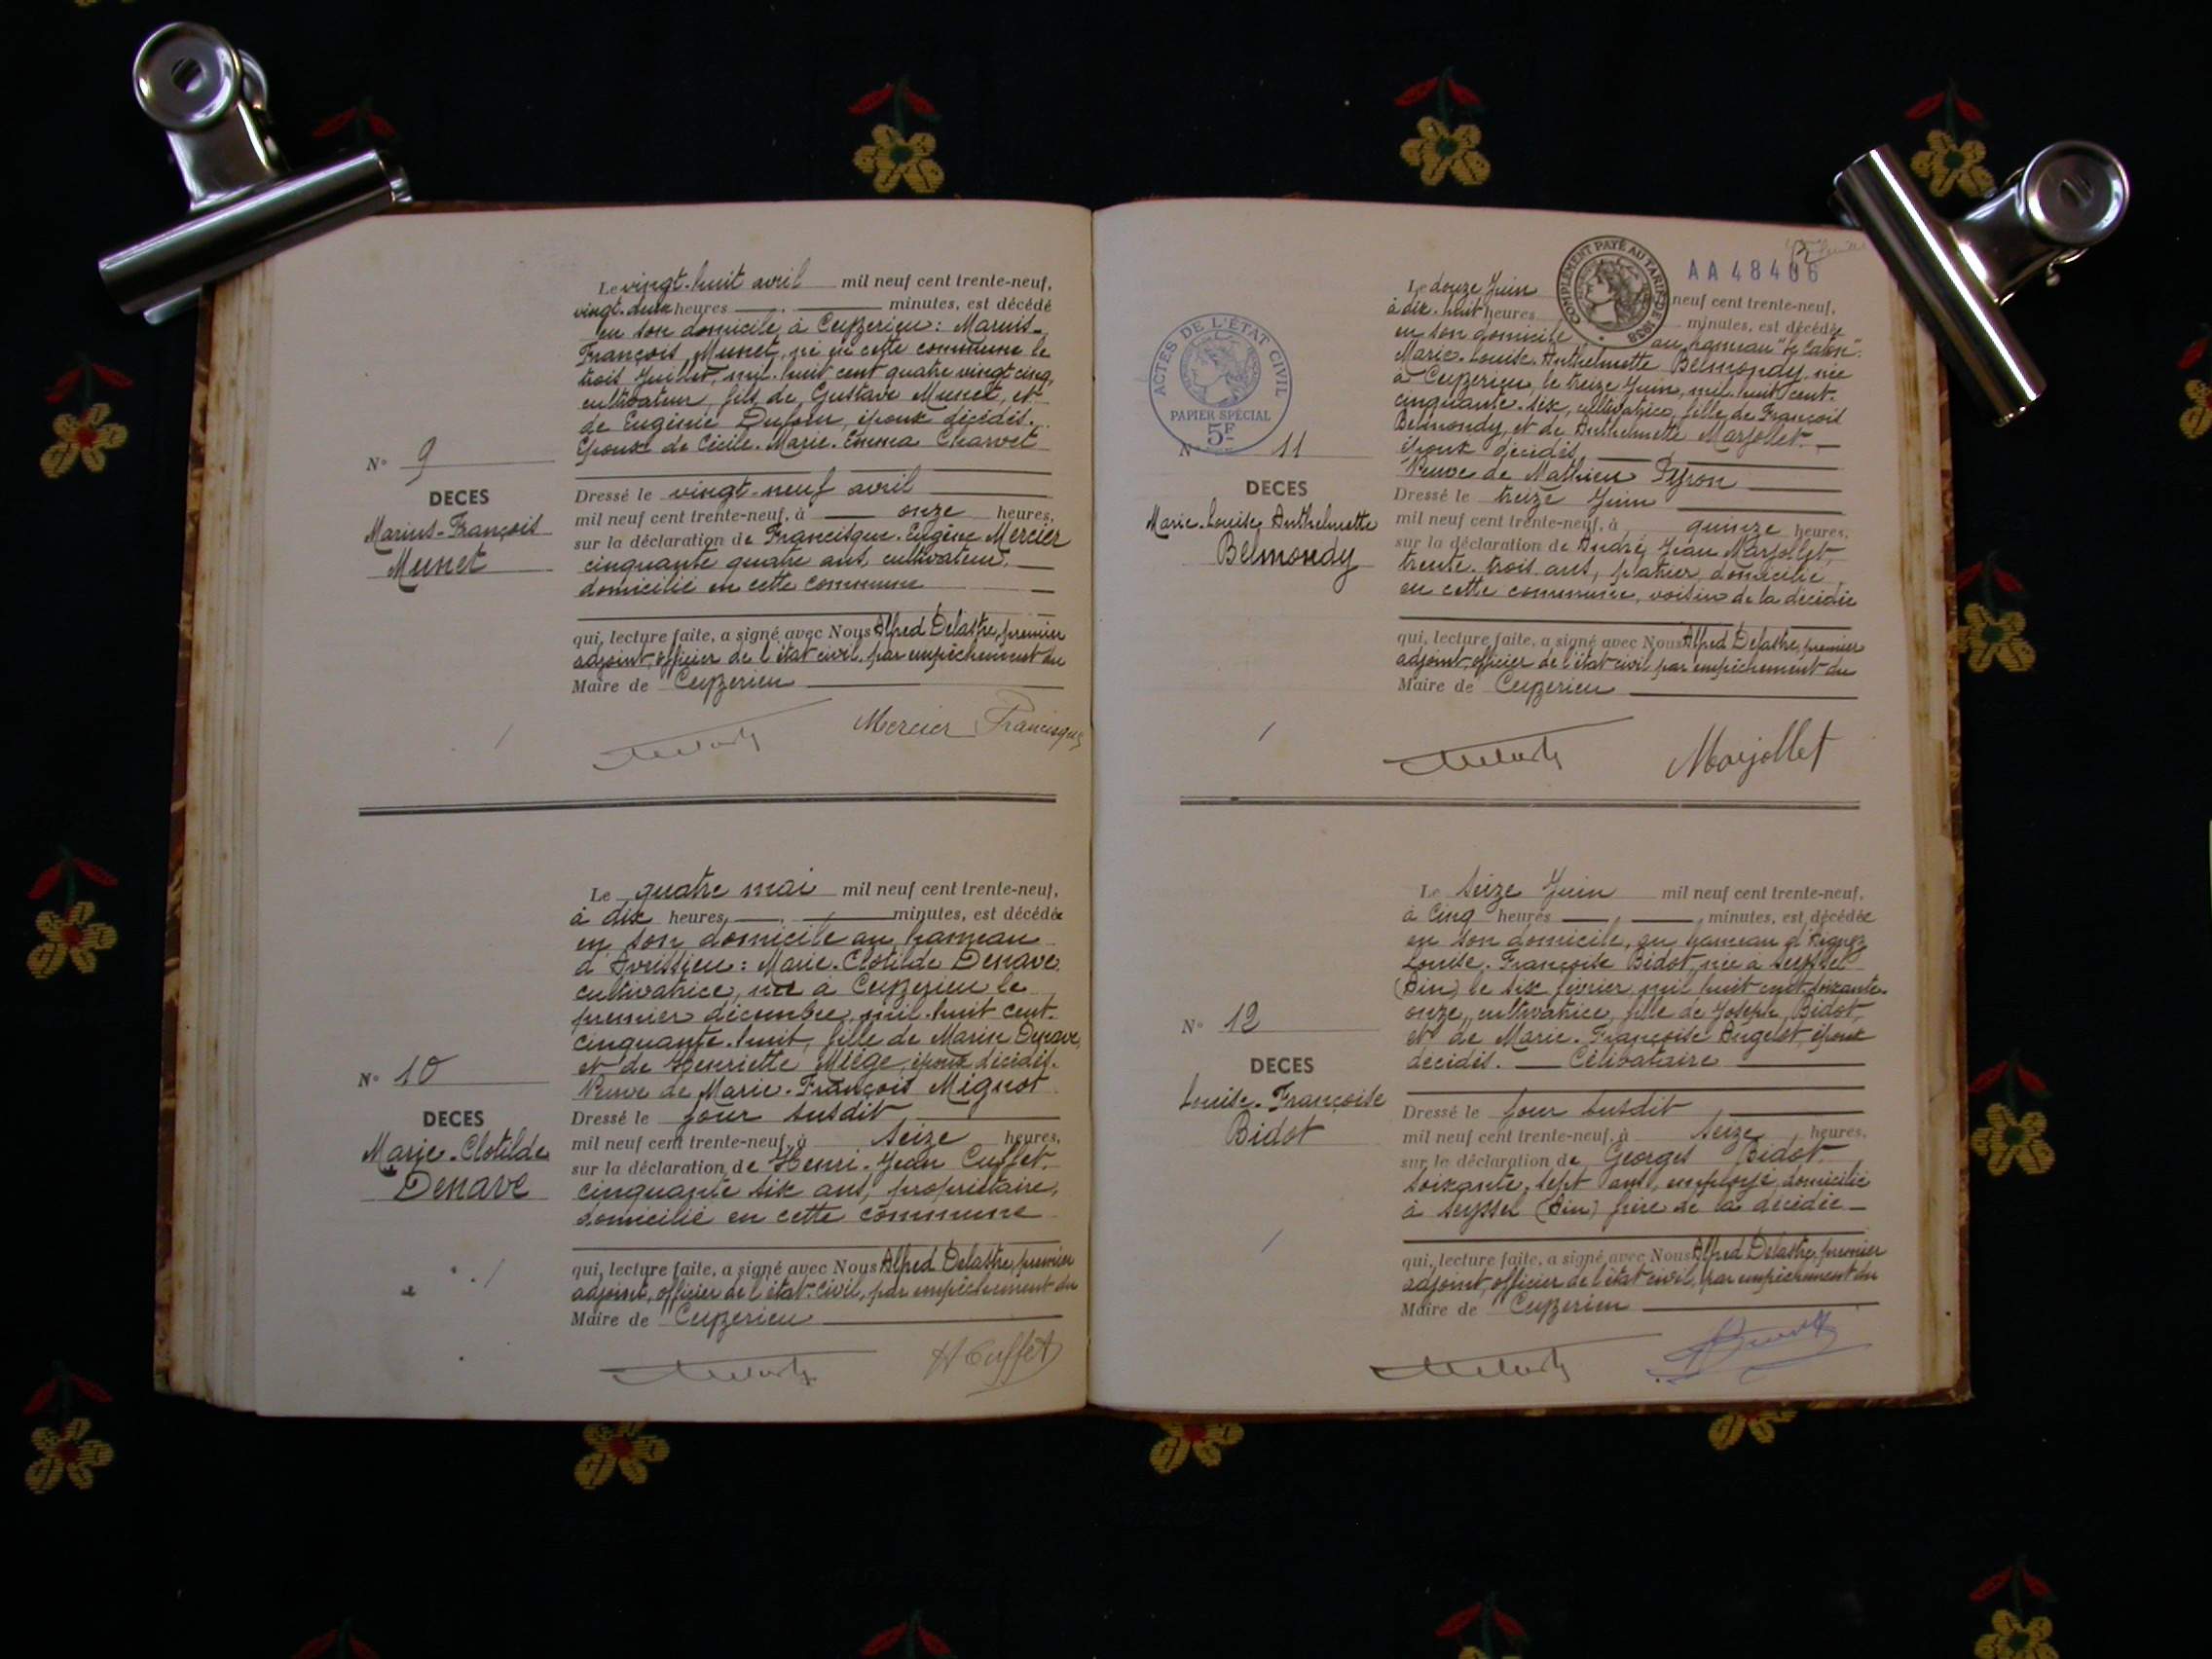 Le vingt-huit avril mil neuf cent trente-neuf,
vingt-deux heures minutes, est décédé
en son domicile à Ceyzerieu : Marius-
François Munet, né en cette commune le
trois Juillet, mil-huit cent quatre vingt cinq,
cultivateur, fils de Gustave Munet, et
de Eugénie Dufour, époux décédés.
Epoux de Cécile-Marie-Emma Charvet
N° 9
DECES
Marius-François
Munet
Dressé le vingt-neuf avril
mil neuf cent trente-neuf, à onze heures,
sur la déclaration de Francisque-Eugène Mercier
cinquante quatre ans, cultivateur,
domicilié en cette commune
qui, lecture faite, a signé avec Nous Alfred Delastre, premier
adjoint, officier de l'état civil, par empêchement du
Maire de Ceyzerieu
Mercier Francisque
Le quatre mai mil neuf cent trente-neuf,
à dix heures, minutes, est décédée
en son domicile au hameau
d'Avrissieu : Marie-Clotilde Denave,
cultivatrice, née à Ceyzerieu le
premier décembre, mil-huit cent-
cinquante-huit, fille de Marin Denave,
et de Henriette Miège, époux décédés.
Veuve de Marie-François Mignot
N° 10
DECES
Marie-Clotilde
Denave
Dressé le jour susdit
mil neuf cent trente-neuf, à seize heures,
sur la déclaration de Henri-Jean Cuffet,
cinquante six ans, propriétaire,
domicilié en cette commune
qui, lecture faite, a signé avec Nous Alfred Delastre, premier
adjoint, officier de l'état-civil, par empêchement du
Maire de Ceyzerieu
H Cuffet
COMPLÉMENT PAYÉ AU TARIF DE 1938
AA 48406
ACTES DE L'ÉTAT CIVIL
PAPIER SPÉCIAL
5F
Le douze Juin neuf cent trente-neuf,
à dix-huit heures minutes, est décédée
en son domicile au hameau
Marie-Louise-Anthelmette Belmondy, née
à Ceyzerieu, le treize Juin, mil-huit cent-
cinquante-six, cultivatrice, fille de François
Belmondy, et de Anthelmette Marjollet.
époux décédés
Veuve de Mathieu Peyron
N° 11
DECES
Marie-Louise Anthelmette
Belmondy
Dressé le treize Juin
mil neuf cent trente-neuf, à quinze heures,
sur la déclaration de André Jean Marjollet,
trente-trois ans, plâtrier, domicilié
en cette commune, voisin de la décédée
qui, lecture faite, a signé avec Nous Alfred Delastre, premier
adjoint, officier de l'état civil par empêchement du
Maire de Ceyzerieu
Marjollet
Le seize Juin mil neuf cent trente-neuf,
à cinq heures minutes, est décédée
en son domicile, au hameau d'Aignoz
Louise-Françoise Bidot, née à Seyssel
(Ain) le six février mil huit cent-soixante-
onze, cultivatrice, fille de Joseph Bidot,
et de Marie-Françoise Angelot, époux
décédés. Célibataire
N° 12
DECES
Louise-Françoise
Bidot
Dressé le jour susdit
mil neuf cent trente-neuf, à seize heures,
sur la déclaration de Georges Bidot,
soixante-sept ans, employé, domicilié
à Seyssel (Ain) frère de la décédée
qui, lecture faite, a signé avec Nous Alfred Delastre, premier
adjoint, officier de l'état civil, par empêchement du
Maire de Ceyzerieu